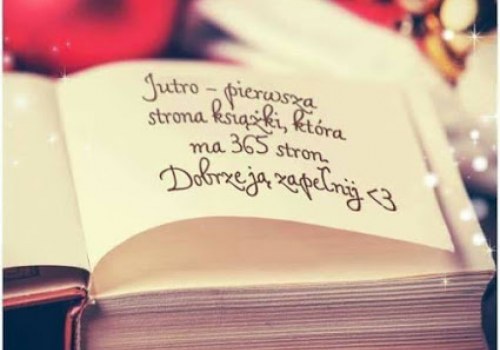 Jutro - pierwsza
strona książki, która
ma 365 stron.
Dobrze ją zapełnij <3